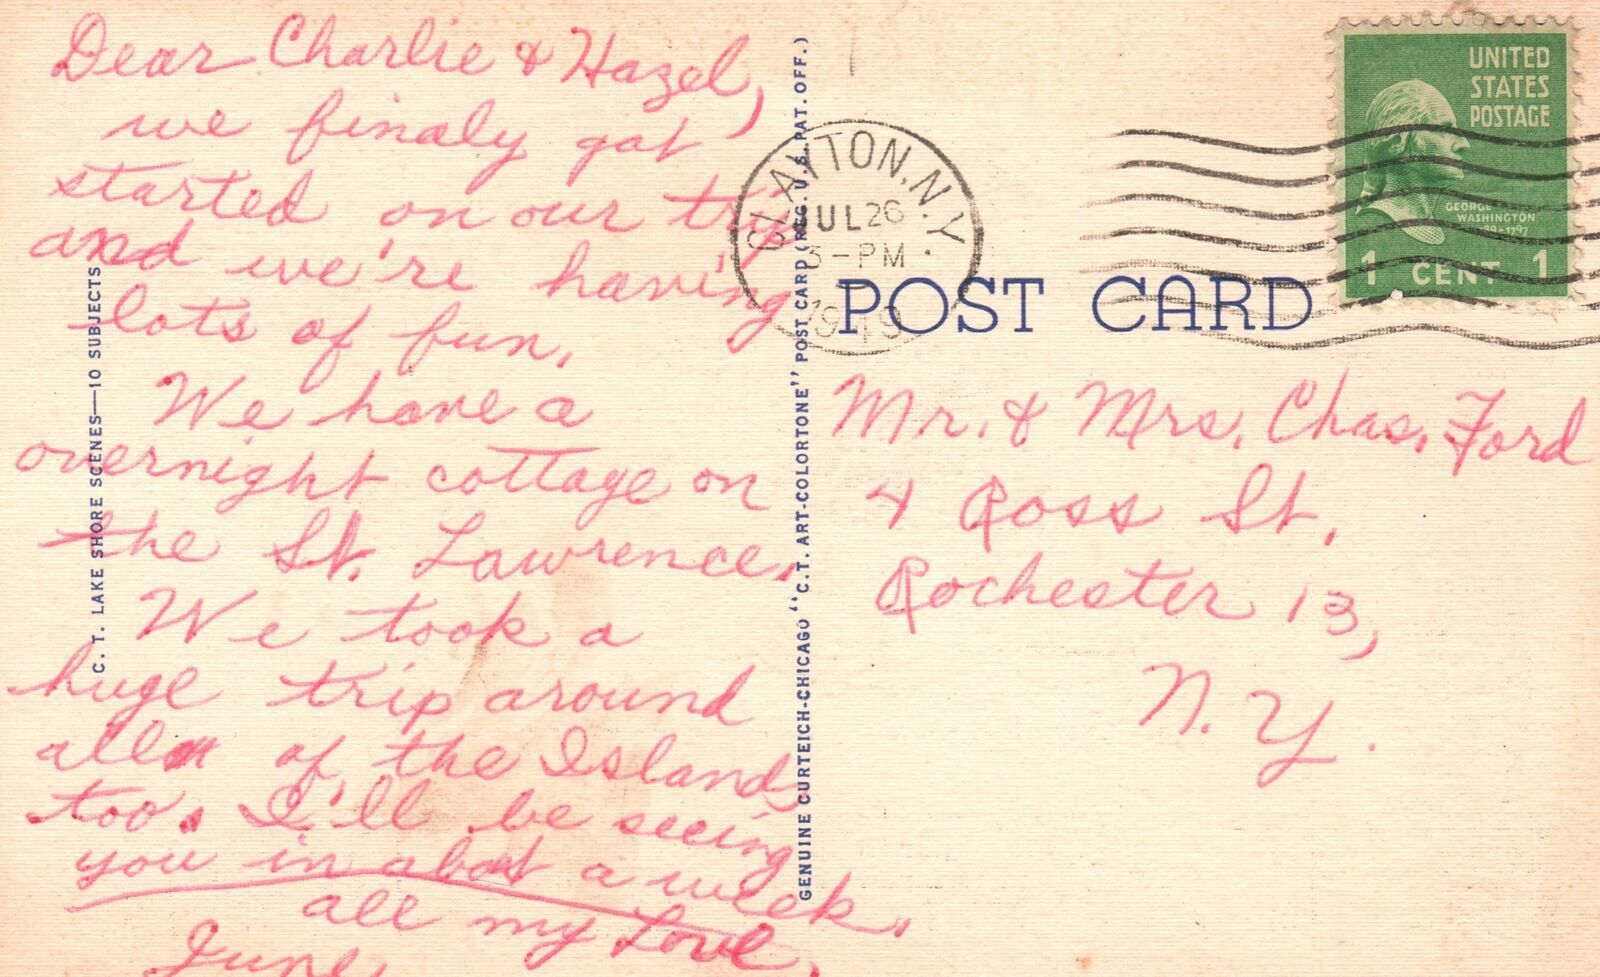 Dear Charlie & Hazel,
we finaly got
started on our trip
and we're having
lots of fun.
We have a
overnight cottage on
the St. Lawrence.
We took a
huge trip around
all of the Islands
too. I'll be seeing
you in about a week.
all my Love,
June
C. T. LAKE SHORE SCENES—10 SUBJECTS
GENUINE CURTEICH-CHICAGO "C.T. ART-COLORTONE" POST CARD (REG. U.S. PAT. OFF.)
CLAYTON, N.Y.
JUL 26
3-PM
1949
UNITED
STATES
POSTAGE
GEORGE
WASHINGTON
89-1797
1 CENT 1
POST CARD
Mr. & Mrs. Chas. Ford
4 Ross St.
Rochester 13,
N. Y.